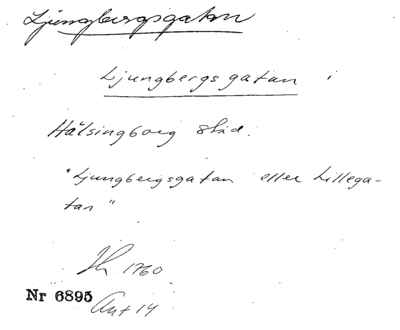 Ljungbergsgatan
Ljungbergsgatan i
Hälsingborg stad.
"Ljungbergsgatan eller Lillega-
tan"
1760
Nr 6895
Ant 14